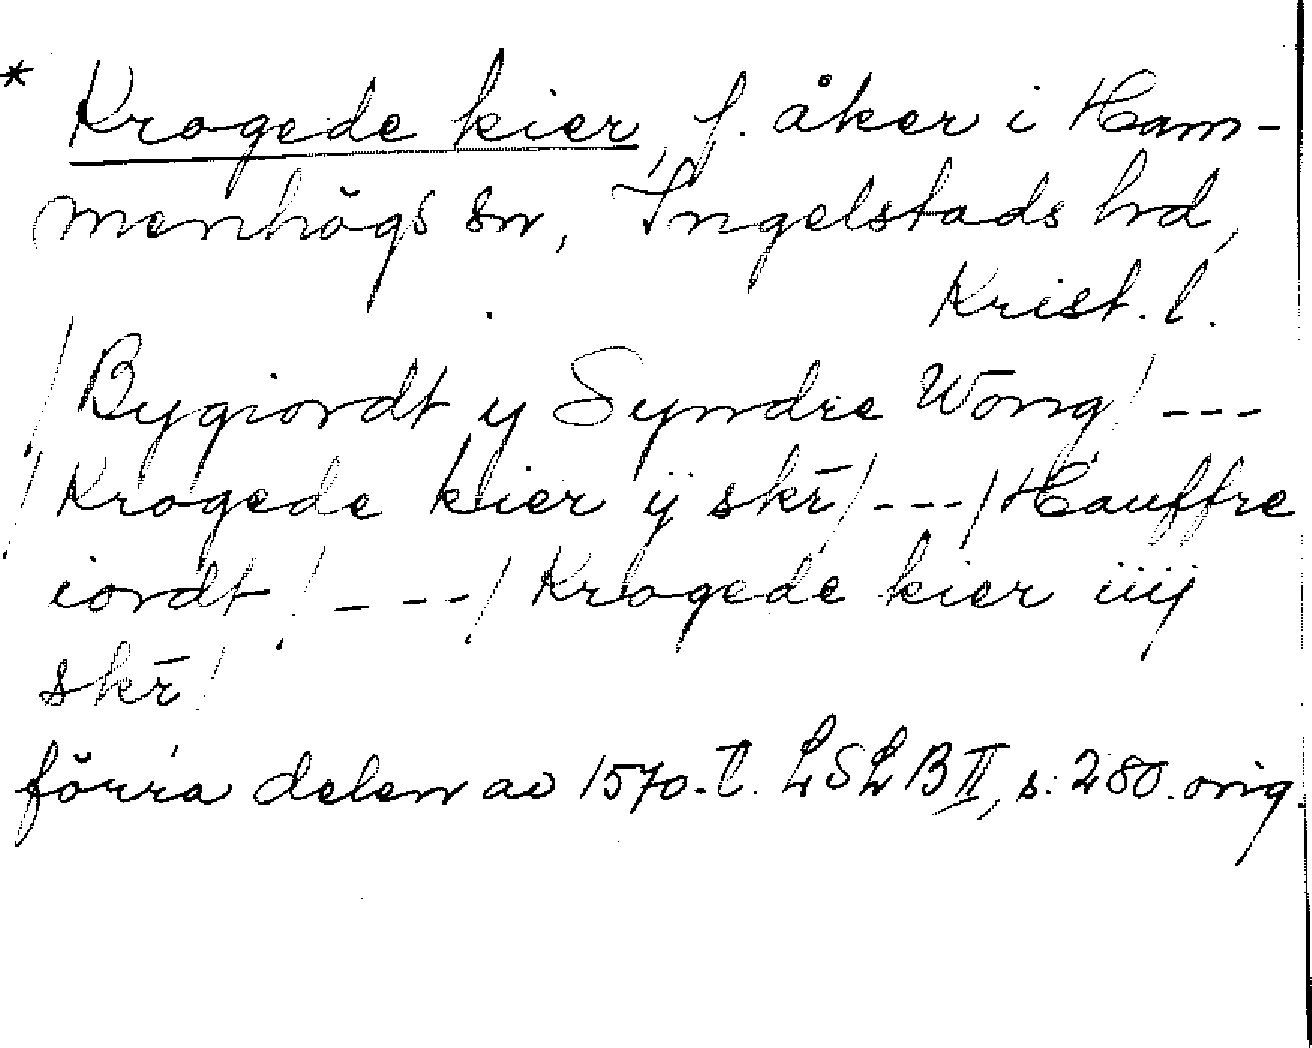 * Krogede kier, f. åker i Ham-
menhögs sn, Ingelstads hrd,
Krist. l.
/Bygiordt y Syndre Wong/ ---
/Krogede kier ij skr̄/---/Hauffre
iordt/---/Krogede kier iiij
skr̄/
förra delen av 1570-t. LSLB II, s. 280. orig.